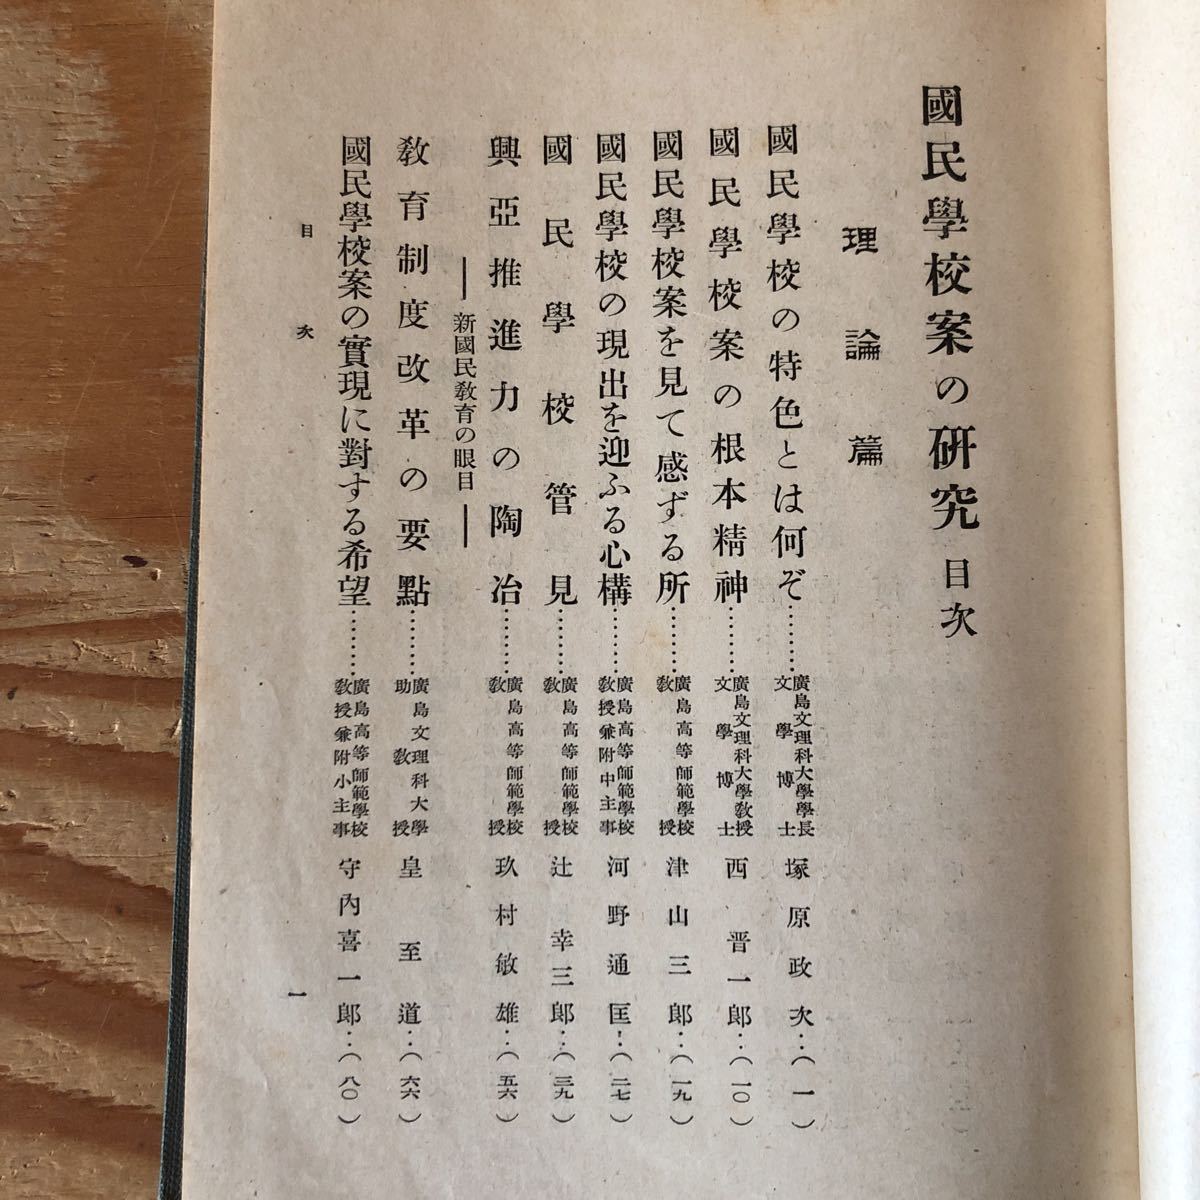 國民學校案の研究 目次
理論篇
國民學校の特色とは何ぞ………廣島文理科大學學長 文學博士 塚原政次…(一)
國民學校案の根本精神………廣島文理科大學教授 文學博士 西晋一郎…(一〇)
國民學校案を見て感ずる所………廣島高等師範學校教授 津山三郎…(一九)
國民學校の現出を迎ふる心構………廣島高等師範學校教授兼附中主事 河野通匡…(二七)
國民學校管見………廣島高等師範學校教授 辻幸三郎…(三九)
興亞推進力の陶冶………廣島高等師範學校教授 玖村敏雄…(五六)
――新國民教育の眼目――
教育制度改革の要點………廣島文理科大學助教授 皇至道…(六六)
國民學校案の實現に對する希望………廣島高等師範學校教授兼附小主事 守內喜一郎…(八〇)
目次 一